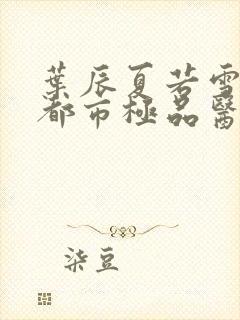 葉辰夏若雪
都市極品醫
柒豆